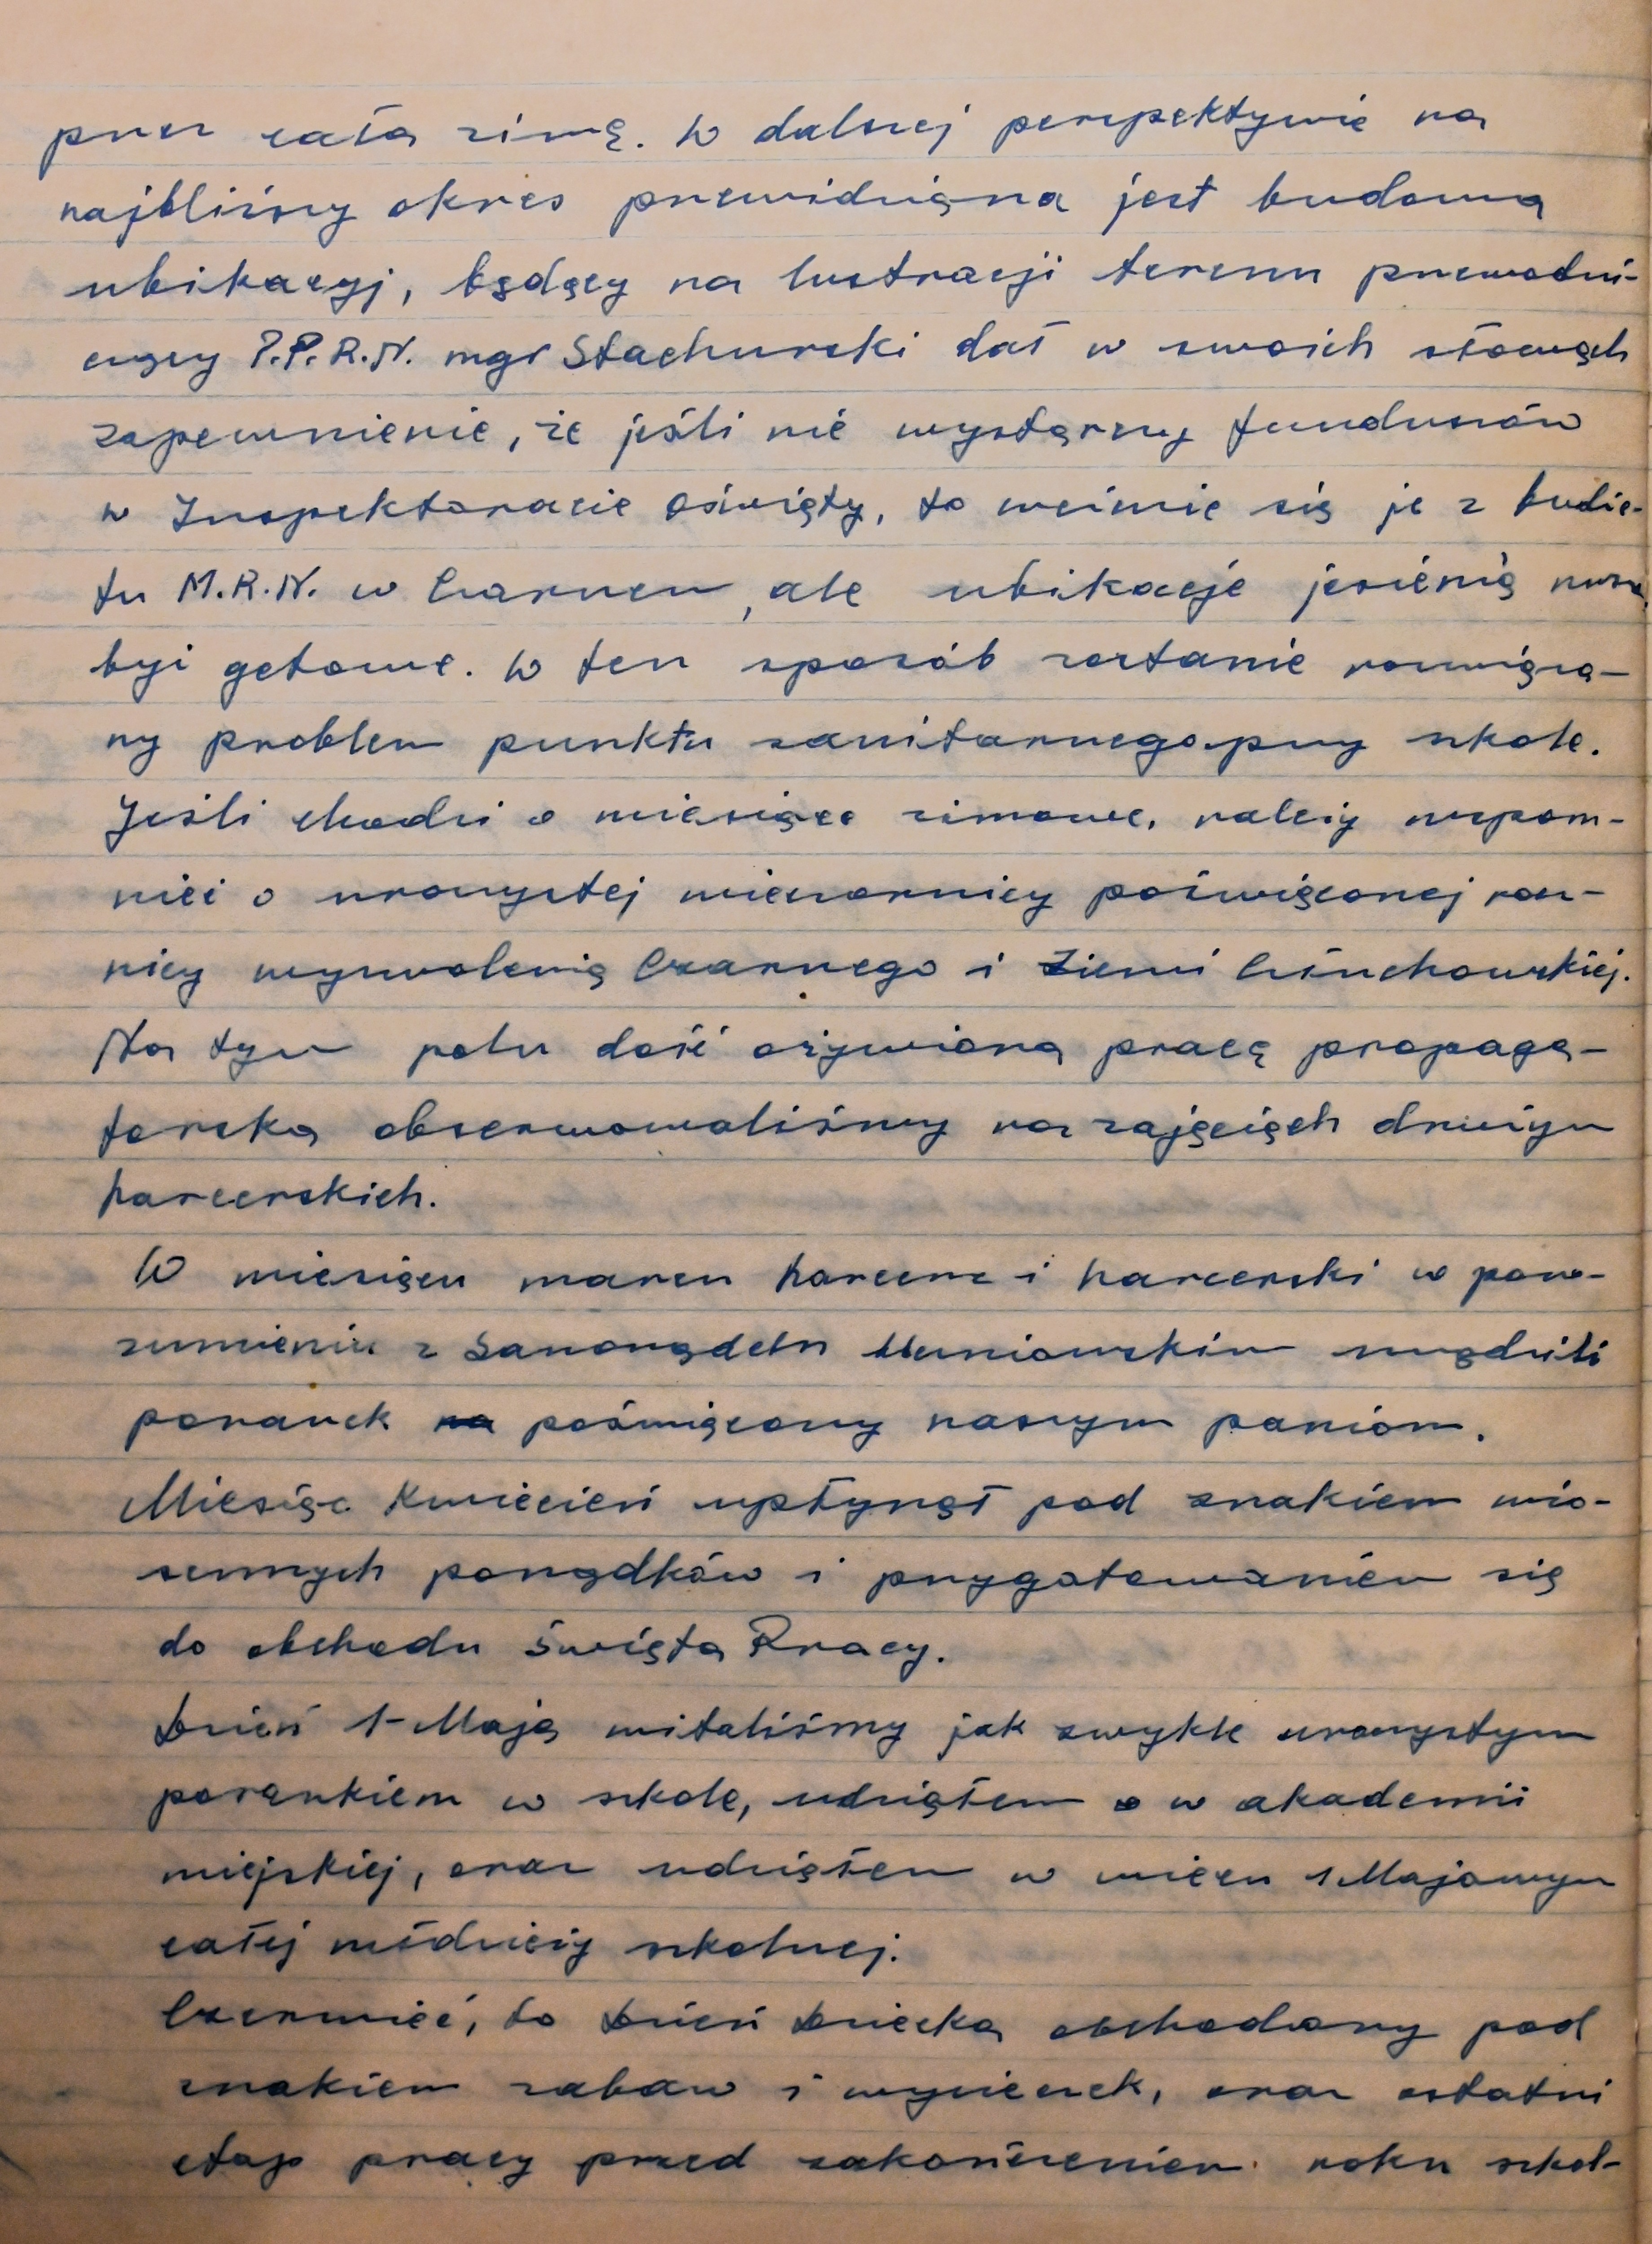 przez całą zimę. W dalszej perspektywie na
najbliższy okres przewidziana jest budowa
ubikacyj, będący na lustracji terenu przewodni-
czący P.P.R.N. mgr Stachurski dał w swoich słowach
zapewnienie, że jeśli nie wystarczy funduszów
w Inspektoracie Oświaty, to weźmie się je z budże-
tu M.R.N. w Czarnem, ale ubikacje jesienią muszą
być gotowe. W ten sposób zostanie rozwiąza-
ny problem punktu sanitarnego przy szkole.
Jeśli chodzi o miesiące zimowe, należy wspom-
nieć o uroczystej wieczornicy poświęconej rocz-
nicy wyzwolenia Czarnego i Ziemi Człuchowskiej.
Na tym polu dość ożywioną pracę propaga-
torską obserwowaliśmy na zajęciach drużyn
harcerskich.
W miesiącu marcu harcerze i harcerski w poro-
zumieniu z Samorządem Uczniowskim urządzili
poranek poświęcony naszym paniom.
Miesiąc Kwiecień upłynął pod znakiem wio-
sennych porządków i przygotowaniem się
do obchodu Święta Pracy.
Dzień 1-Maja witaliśmy jak zwykle uroczystym
porankiem w szkole, udziałem w akademii
miejskiej, oraz udziałem w wiecu 1 Majowym
całej młodzieży szkolnej.
Czerwiec, to Dzień Dziecka obchodzony pod
znakiem zabaw i wycieczek, oraz ostatni
etap pracy przed zakończeniem roku szkol-